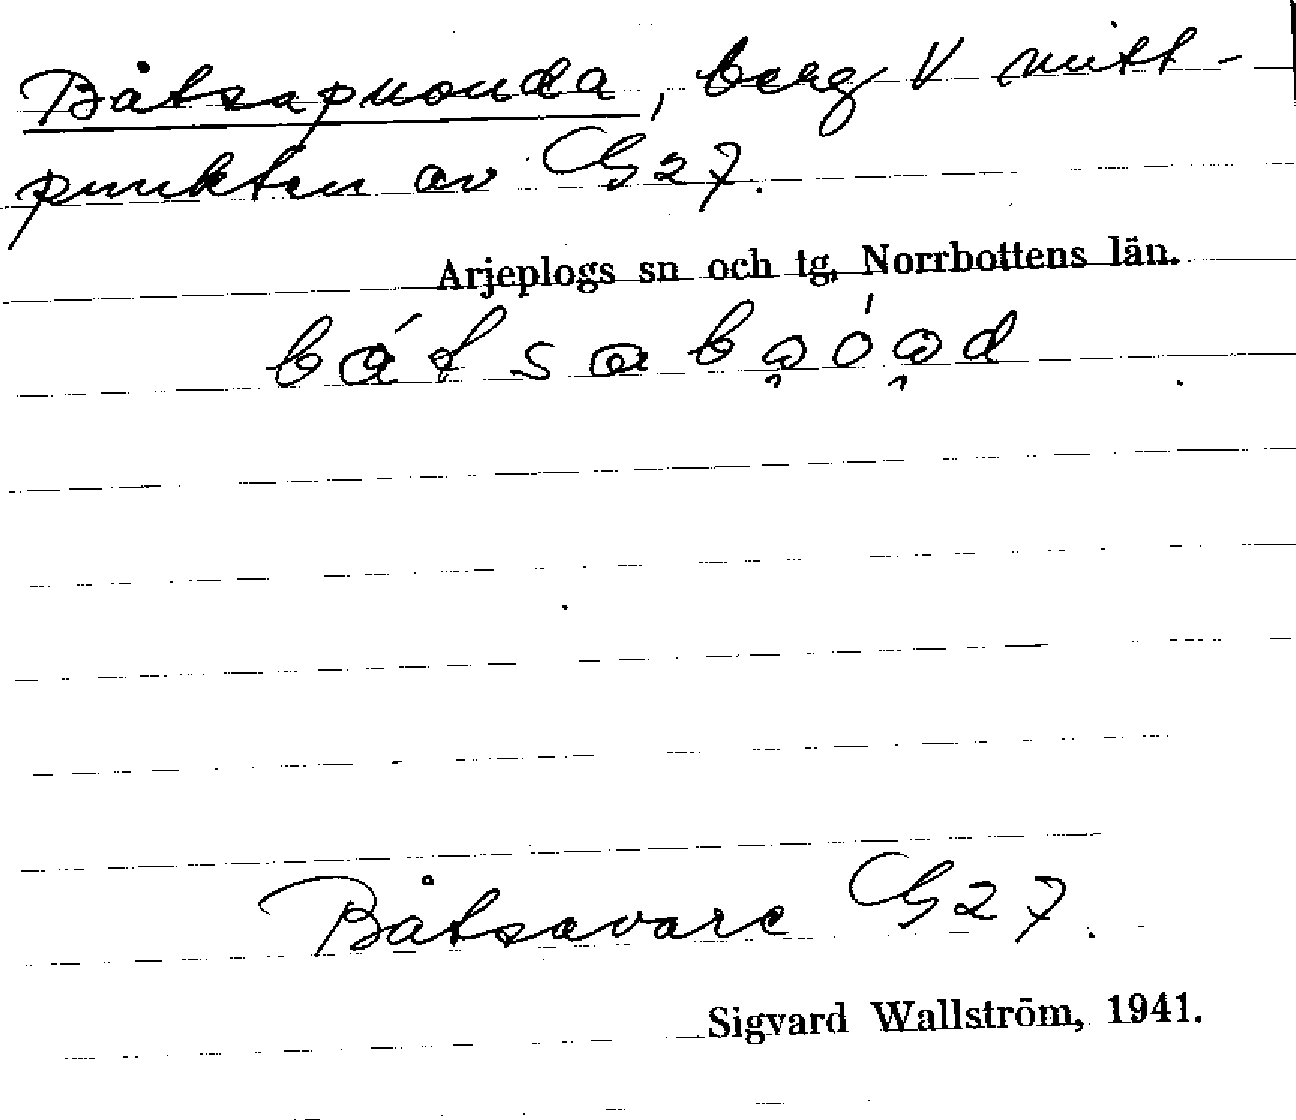 Båtsapuouda, berg V mitt-
punkten av G27.
Arjeplogs sn och tg, Norrbottens län.
Båtsavare G27.
Sigvard Wallström, 1941.